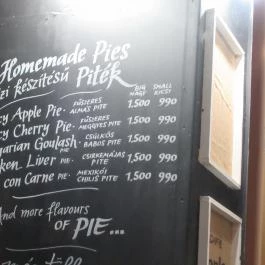 Homemade Pies
zi készítésű Piték
BIG NAGY SMALL KICSI
cy Apple Pie · FŰSZERES ALMÁS PITE 1,500 990
cy Cherry Pie · FŰSZERES MEGGYES PITE 1,500 990
garian Goulash PIE · CSÜLKÖS BABOS PITE 1,500 990
ken Liver PIE · CSIRKEMÁJAS PITE 1,500 990
con Carne PIE · MEXIKÓI CHILIS PITE 1,500 990
And more flavours
of PIE...